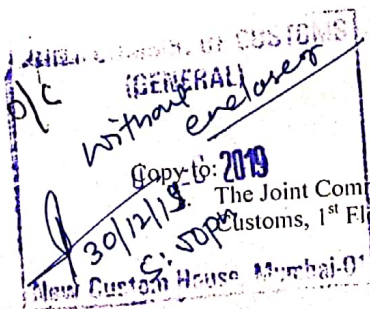 OF CUSTOMS
(GENERAL)
O/C
without
encloser
Copy to: 2019
The Joint Com
Customs, 1st Fl
30/12/19
New Custom House, Mumbai-01